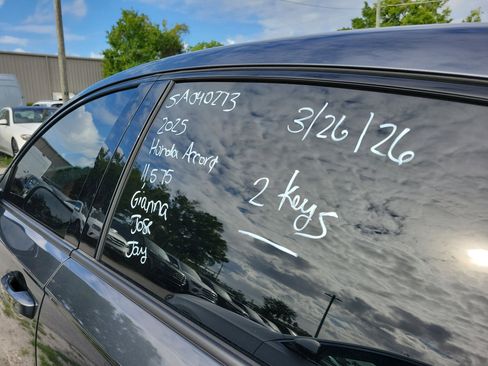 SA040273
2025
Honda Accord
11,575
Gianna
Jose
Jay
3/26/26
2 Keys